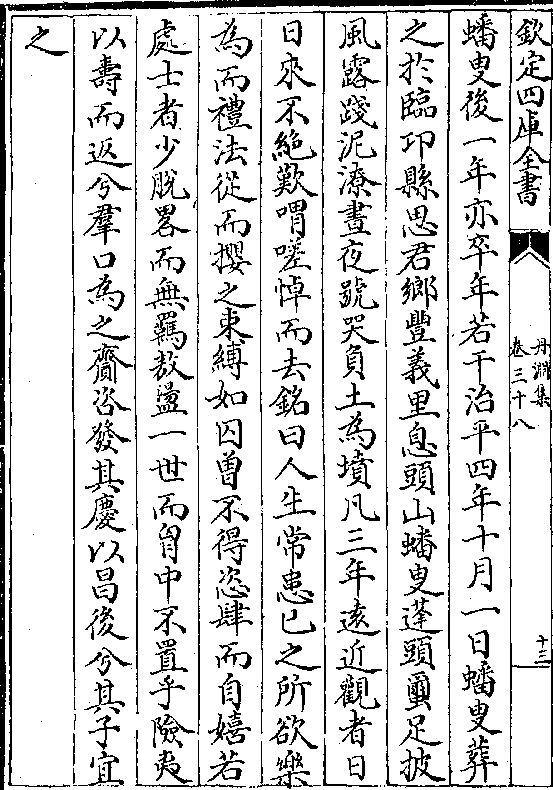 欽定四庫全書
丹淵集
卷三十八
十三
蟠叟後一年亦卒年若干治平四年十月一日蟠叟葬
之於臨卭縣思君鄉豐義里息頭山蟠叟蓬頭繭足披
風露踐泥潦晝夜號哭負土為墳凡三年遠近觀者日
日來不絶歎喟嗟悼而去銘曰人生常患已之所欲樂
為而禮法從而攖之束縛如囚曽不得恣肆而自嬉若
處士者少脫畧而無羈敖盪一世而胷中不置乎險夷
以壽而返兮羣口為之齎咨發其慶以昌後兮其子宜
之